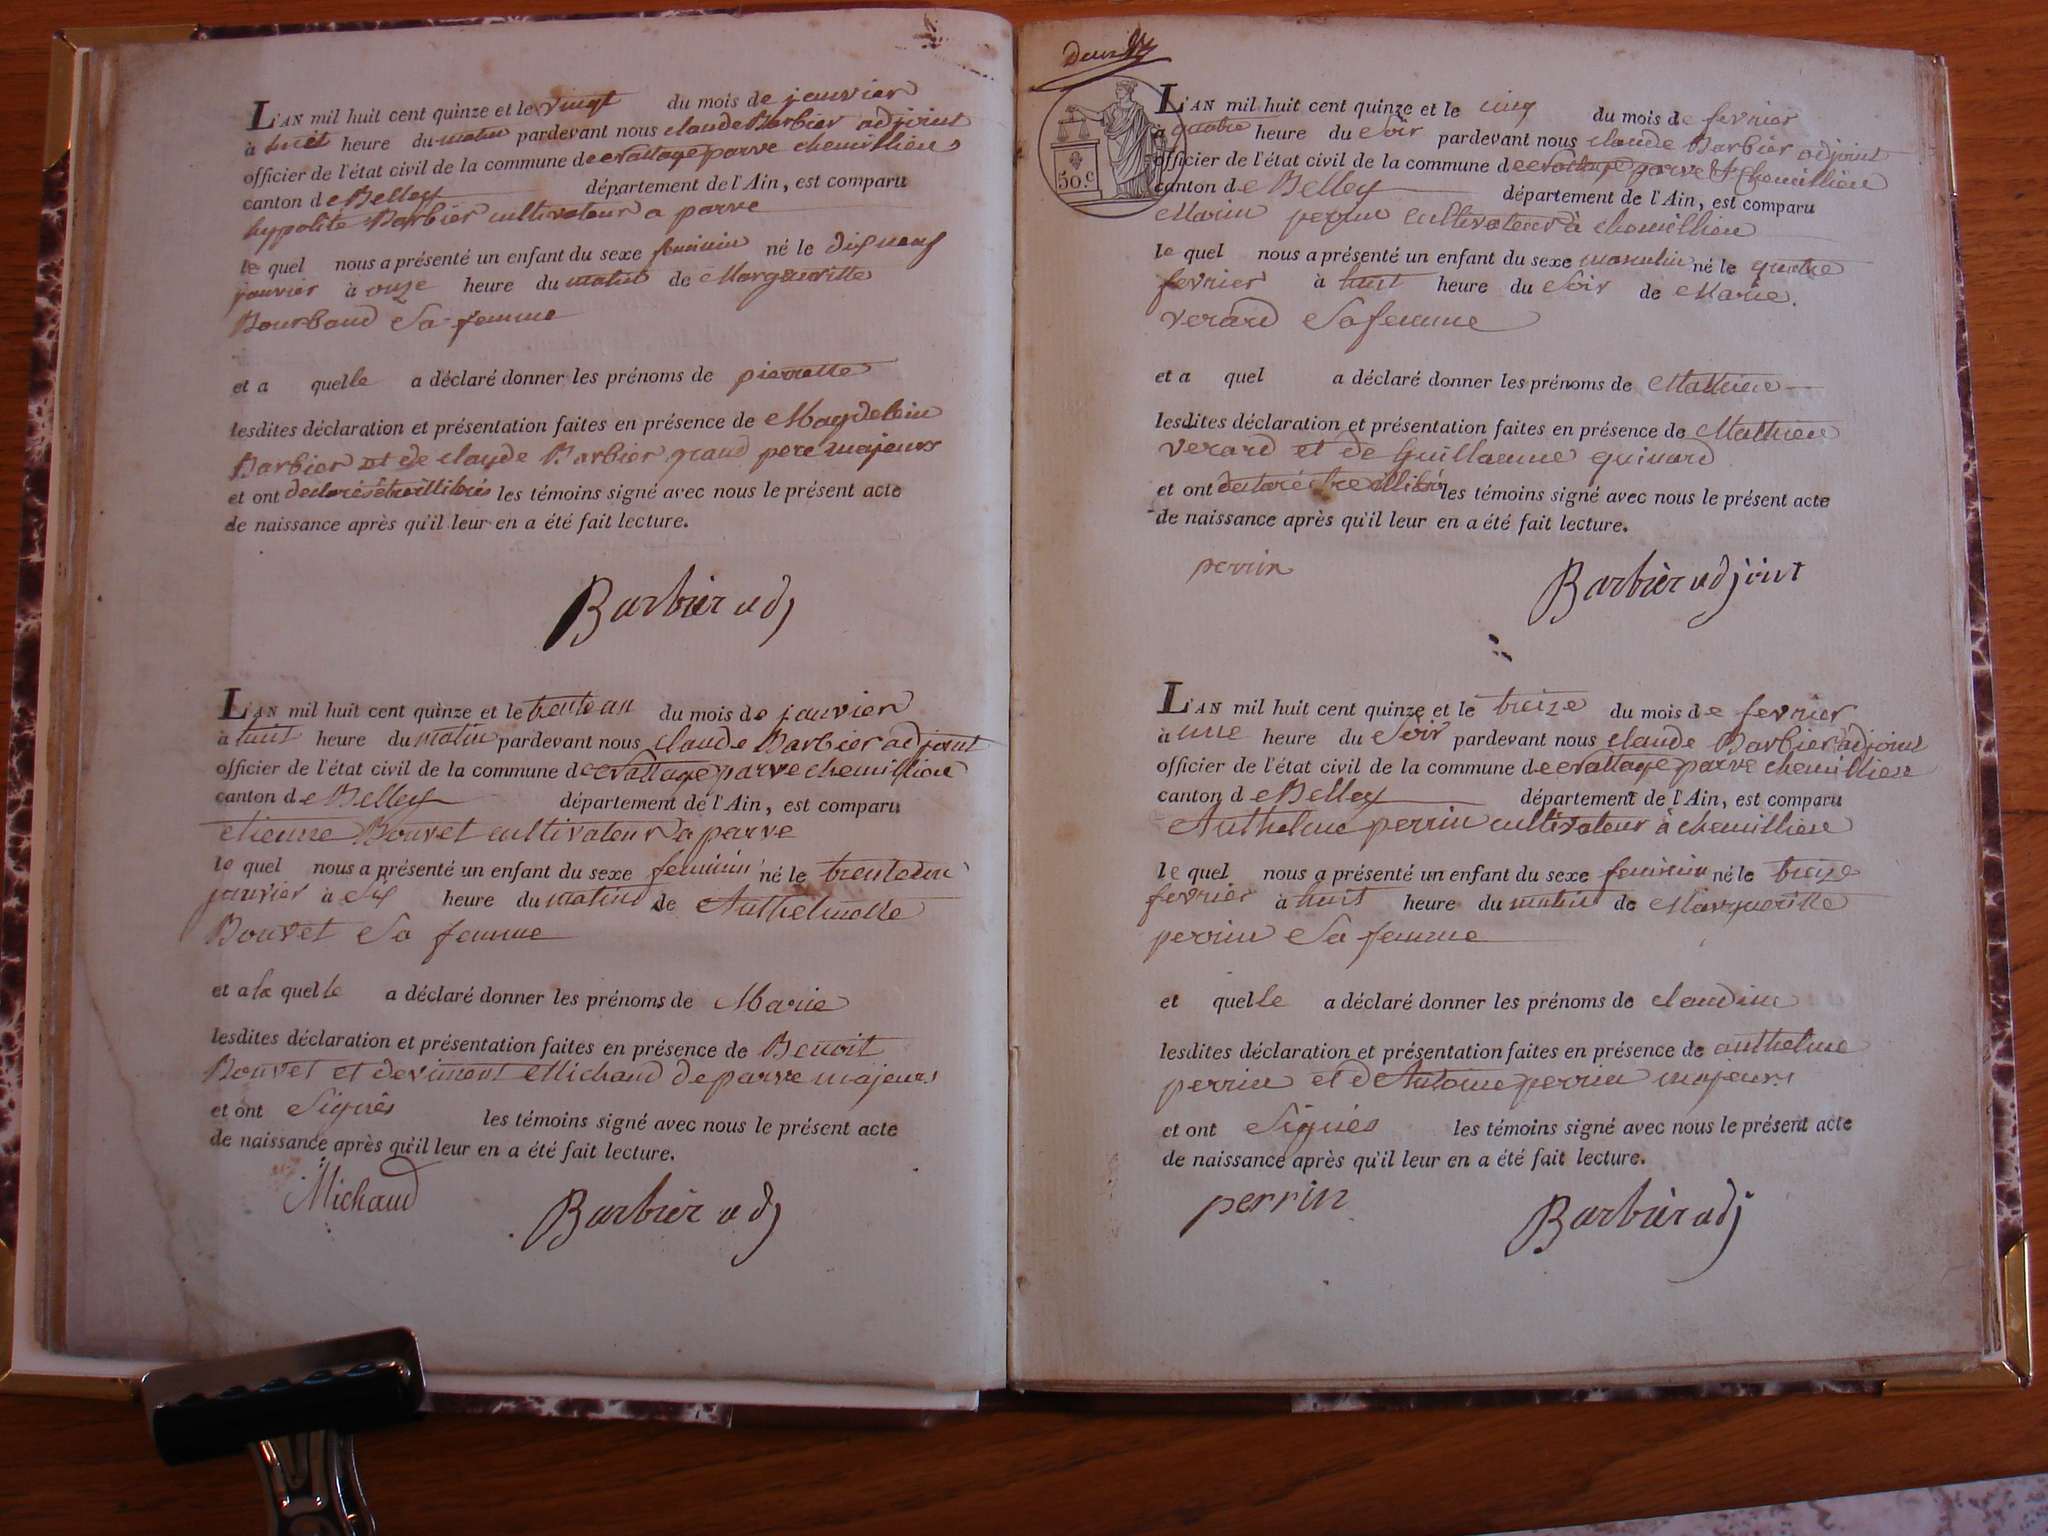 L'AN mil huit cent quinze et le vingt du mois de janvier
à huit heure du matin pardevant nous claude Barbier adjoint
officier de l'état civil de la commune de parve chemillieu
canton de Belley département de l'Ain, est comparu
hypolite Barbier cultivateur a parve
le quel nous a présenté un enfant du sexe feminin né le dix neuf
janvier à onze heure du matin de Margueritte
Bourbaud Sa femme
et a quelle a déclaré donner les prénoms de pierrette
lesdites déclaration et présentation faites en présence de Magdelein
Barbier et de claude Barbier grand pere majeurs
et ont les témoins signé avec nous le présent acte
de naissance après qu'il leur en a été fait lecture.
Barbier adj
L'AN mil huit cent quinze et le trente un du mois de janvier
à huit heure du matin pardevant nous claude Barbier adjoint
officier de l'état civil de la commune de parve chemillieu
canton de Belley département de l'Ain, est comparu
etienne Bouvet cultivateur a parve
le quel nous a présenté un enfant du sexe feminin né le
janvier à Six heure du matin de Anthelmette
Bouvet Sa femme
et a la quelle a déclaré donner les prénoms de Marie
lesdites déclaration et présentation faites en présence de Benoit
Bouvet et de Michaud de parve majeurs
et ont Signés les témoins signé avec nous le présent acte
de naissance après qu'il leur en a été fait lecture.
Michaud Barbier adj
50.c
L'AN mil huit cent quinze et le cinq du mois de fevrier
à quatre heure du Soir pardevant nous claude Barbier adjoint
officier de l'état civil de la commune de parve & chemillieu
canton de Belley département de l'Ain, est comparu
Marin perrin cultivateur à chemillieu
le quel nous a présenté un enfant du sexe masculin né le quatre
fevrier à huit heure du Soir de Marie
verard Sa femme
et a quel a déclaré donner les prénoms de Mathieu
lesdites déclaration et présentation faites en présence de Mathieu
verard et de Guillaume guinard
et ont les témoins signé avec nous le présent acte
de naissance après qu'il leur en a été fait lecture.
perrin Barbier adjoint
L'AN mil huit cent quinze et le treize du mois de fevrier
à une heure du Soir pardevant nous claude Barbier adjoint
officier de l'état civil de la commune de parve chemillieu
canton de Belley département de l'Ain, est comparu
Anthelme perrin cultivateur à chemillieu
le quel nous a présenté un enfant du sexe feminin né le treize
fevrier à huit heure du matin de Margueritte
perrin Sa femme
et quelle a déclaré donner les prénoms de claudine
lesdites déclaration et présentation faites en présence de anthelme
perrin et d Antoine perrin majeurs
et ont Signés les témoins signé avec nous le présent acte
de naissance après qu'il leur en a été fait lecture.
perrin Barbier adj